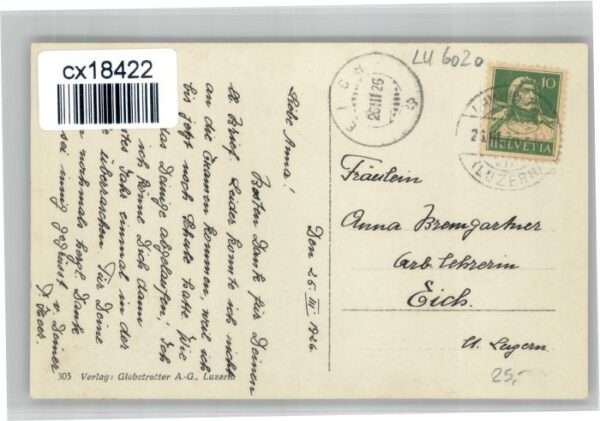 cx18422
LU 6020
10
HELVETIA
EICH
26.III.26
(LUZERN)
Den 25. III 1926.
Liebe Anna!
Besten Dank für Deinen
lb. Brief. Leider konnte ich nicht
an die Examen kommen, weil ich
bis jetzt noch Schule hatte. Wie
das Deinige abgelaufen? Ich
ich könne Dich dann
Jahr einmal in der
überraschen. Für Deine
nochmals herzl. Dank
sei innig gegrüsst v. Deiner
Fräulein
Anna Bremgartner
Arb. lehrerin
Eich.
Kt. Luzern.
25,-
305 Verlag: Globetrotter A.-G., Luzern